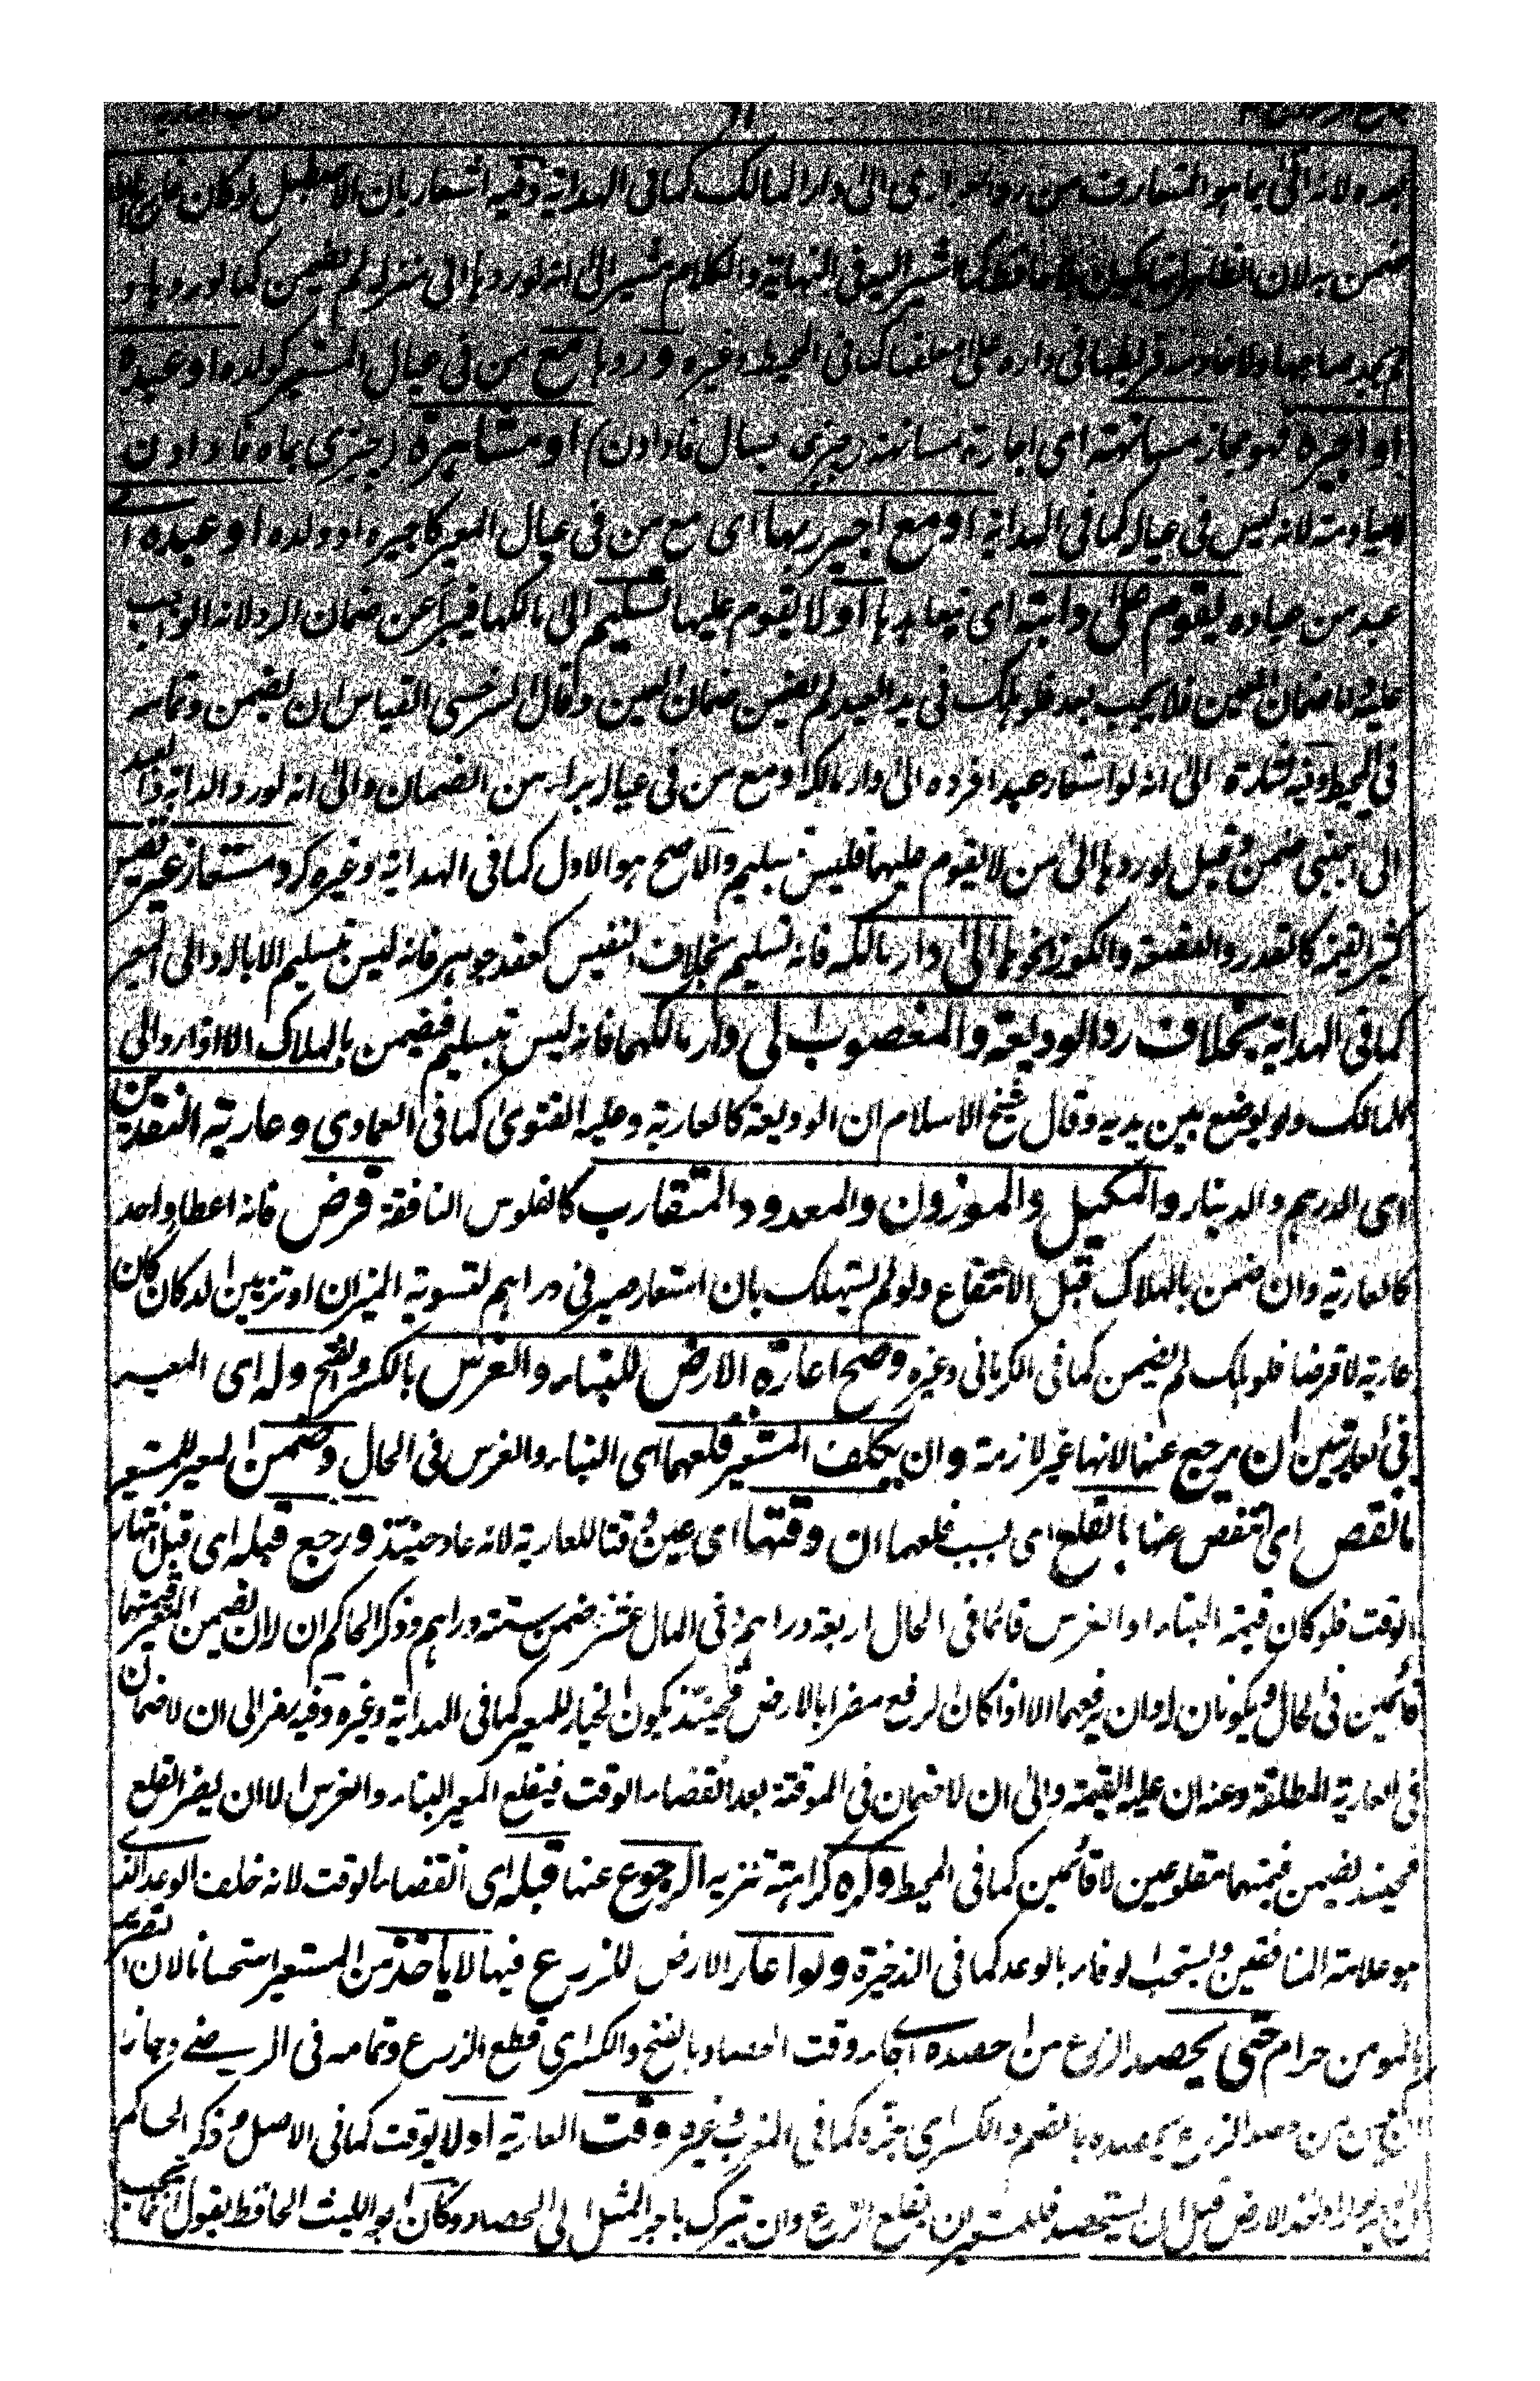 ولانه اتى بما هو المتعارف من رد العوارى الى دار المالك كما فى الهداية وفيه اشعار بان الاصطبل لو كان خارج الدار
ضمن به لان الظاهر كما اشير اليه فى النهاية والكلام مشير الى انه لو ردها الى منزله لم يضمن كما لو ردها و
لم يجد صاحبها ولا خادمه فربطها فى داره على معلفها كما فى المحيط وغيره وردها مع من فى عيال المستعير كولده او عبده
او اجيره فهو مجاز مسانهة اى اجارة مسانهة (چيزى بسال فا دادن) او مشاهرة (چيزى بماه فا دادن
لا مياومة لانه ليس فى عياله كما فى الهداية او مع اجير ربها اى مع من فى عيال المعير كاجيره او ولده او عبده اى
عبد من عباده يقوم على دابته اى يتعاهدها او لا يقوم عليها تسليم الى مالكها فيبرأ عن ضمان الرد لانه الواجب
عليه لا ضمان العين فلا يجب بعد فلو هلك فى يد العبد لم يضمن ضمان العين وقال السرخسى القياس ان يضمن وتمامه
فى المحيط وفيه اشارة الى انه لو استعار عبدا فرده الى دار مالكه او مع من فى عياله برأ من الضمان والى انه لو رد الدابة والعبد
الى اجنبى ضمن وقيل لو ردها الى من لا يقوم عليها فليس بتسليم والاصح هو الاول كما فى الهداية وغيره كرد مستعار غير نفيس
كثير القيمة كالقدر والقصعة والكوز ونحوها الى دار مالكه فانه تسليم بخلاف النفيس كعقد جوهر فانه ليس بتسليم الا بالرد الى المعير
كما فى الهداية بخلاف رد الوديعة والمغصوب الى دار مالكهما فانه ليس بتسليم فيضمن بالهلاك الا اذا رد الى
المالك ولو بوضع بين يديه وقال شيخ الاسلام ان الوديعة كالعارية وعليه الفتوى كما فى العمادى وعارية النقدين
اى الدرهم والدينار والمكيل والموزون والمعدود المتقارب كالفلوس النافقة قرض فانه اعطاء واحد
كالعارية وان ضمن بالهلاك قبل الانتفاع ولو لم يستهلك بان استعار صيرفى دراهم لتسوية الميزان او تزيين الدكان كان
عارية لا قرضا فلو هلك لم يضمن كما فى الكرمانى وغيره وصح اعارة الارض للبناء والغرس بالكسر والفتح وله اى المعير
فى العاريتين ان يرجع عنها لانها غير لازمة وان يكلف المستعير قلعهما اى البناء والغرس فى الحال وضمن المعير للمستعير
ما نقص اى انتقص عنها بالقلع اى بسبب قلعهما ان وقتها اى عين وقتا للعارية لانه عاد حينئذ ورجع قبله اى قبل انتهاء
الوقت فلو كان قيمة البناء او الغرس قائما فى الحال اربعة دراهم وفى المال عشرة ضمن ستة دراهم وذكر الحاكم ان له ان يضمن المعير قيمتهما
قائمين فى الحال ويكونان له وان يرفعهما الا اذا كان الرفع مضرا بالارض فحينئذ يكون الخيار للمعير كما فى الهداية وغيره وفيه رمز الى ان لا ضمان
فى العارية المطلقة وعنه ان عليه القيمة والى ان لا ضمان فى الموقتة بعد انقضاء الوقت فيقلع المعير البناء والغرس الا ان يضر القلع
فحينئذ يضمن قيمتهما مقلوعين لا قائمين كما فى المحيط وكره كراهة تنزيه الرجوع عنها قبله اى انقضاء الوقت لانه خلف الوعد الذى
هو علامة المنافقين ويستحب الوفاء بالوعد كما فى الذخيرة ولو اعار الارض للزرع فيها لا يأخذ من المستعير استحسانا لان تغرير
المومن حرام حتى يحصد الزرع من احصده اى جاء وقت الحصاد بالفتح والكسر اى قطع الزرع وتمامه فى الرضى وجاز
من حصد الزرع يحصده بالضم والكسر اى جزه كما فى المغرب وغيره وقت العارية او لا يوقت كما فى الاصل وذكر الحاكم
الارض قبل ان يستحصد فللمستعير ان يقلع الزرع وان يترك باجر المثل الى الحصاد وكان ابو الليث الحافظ يقول انما يجب